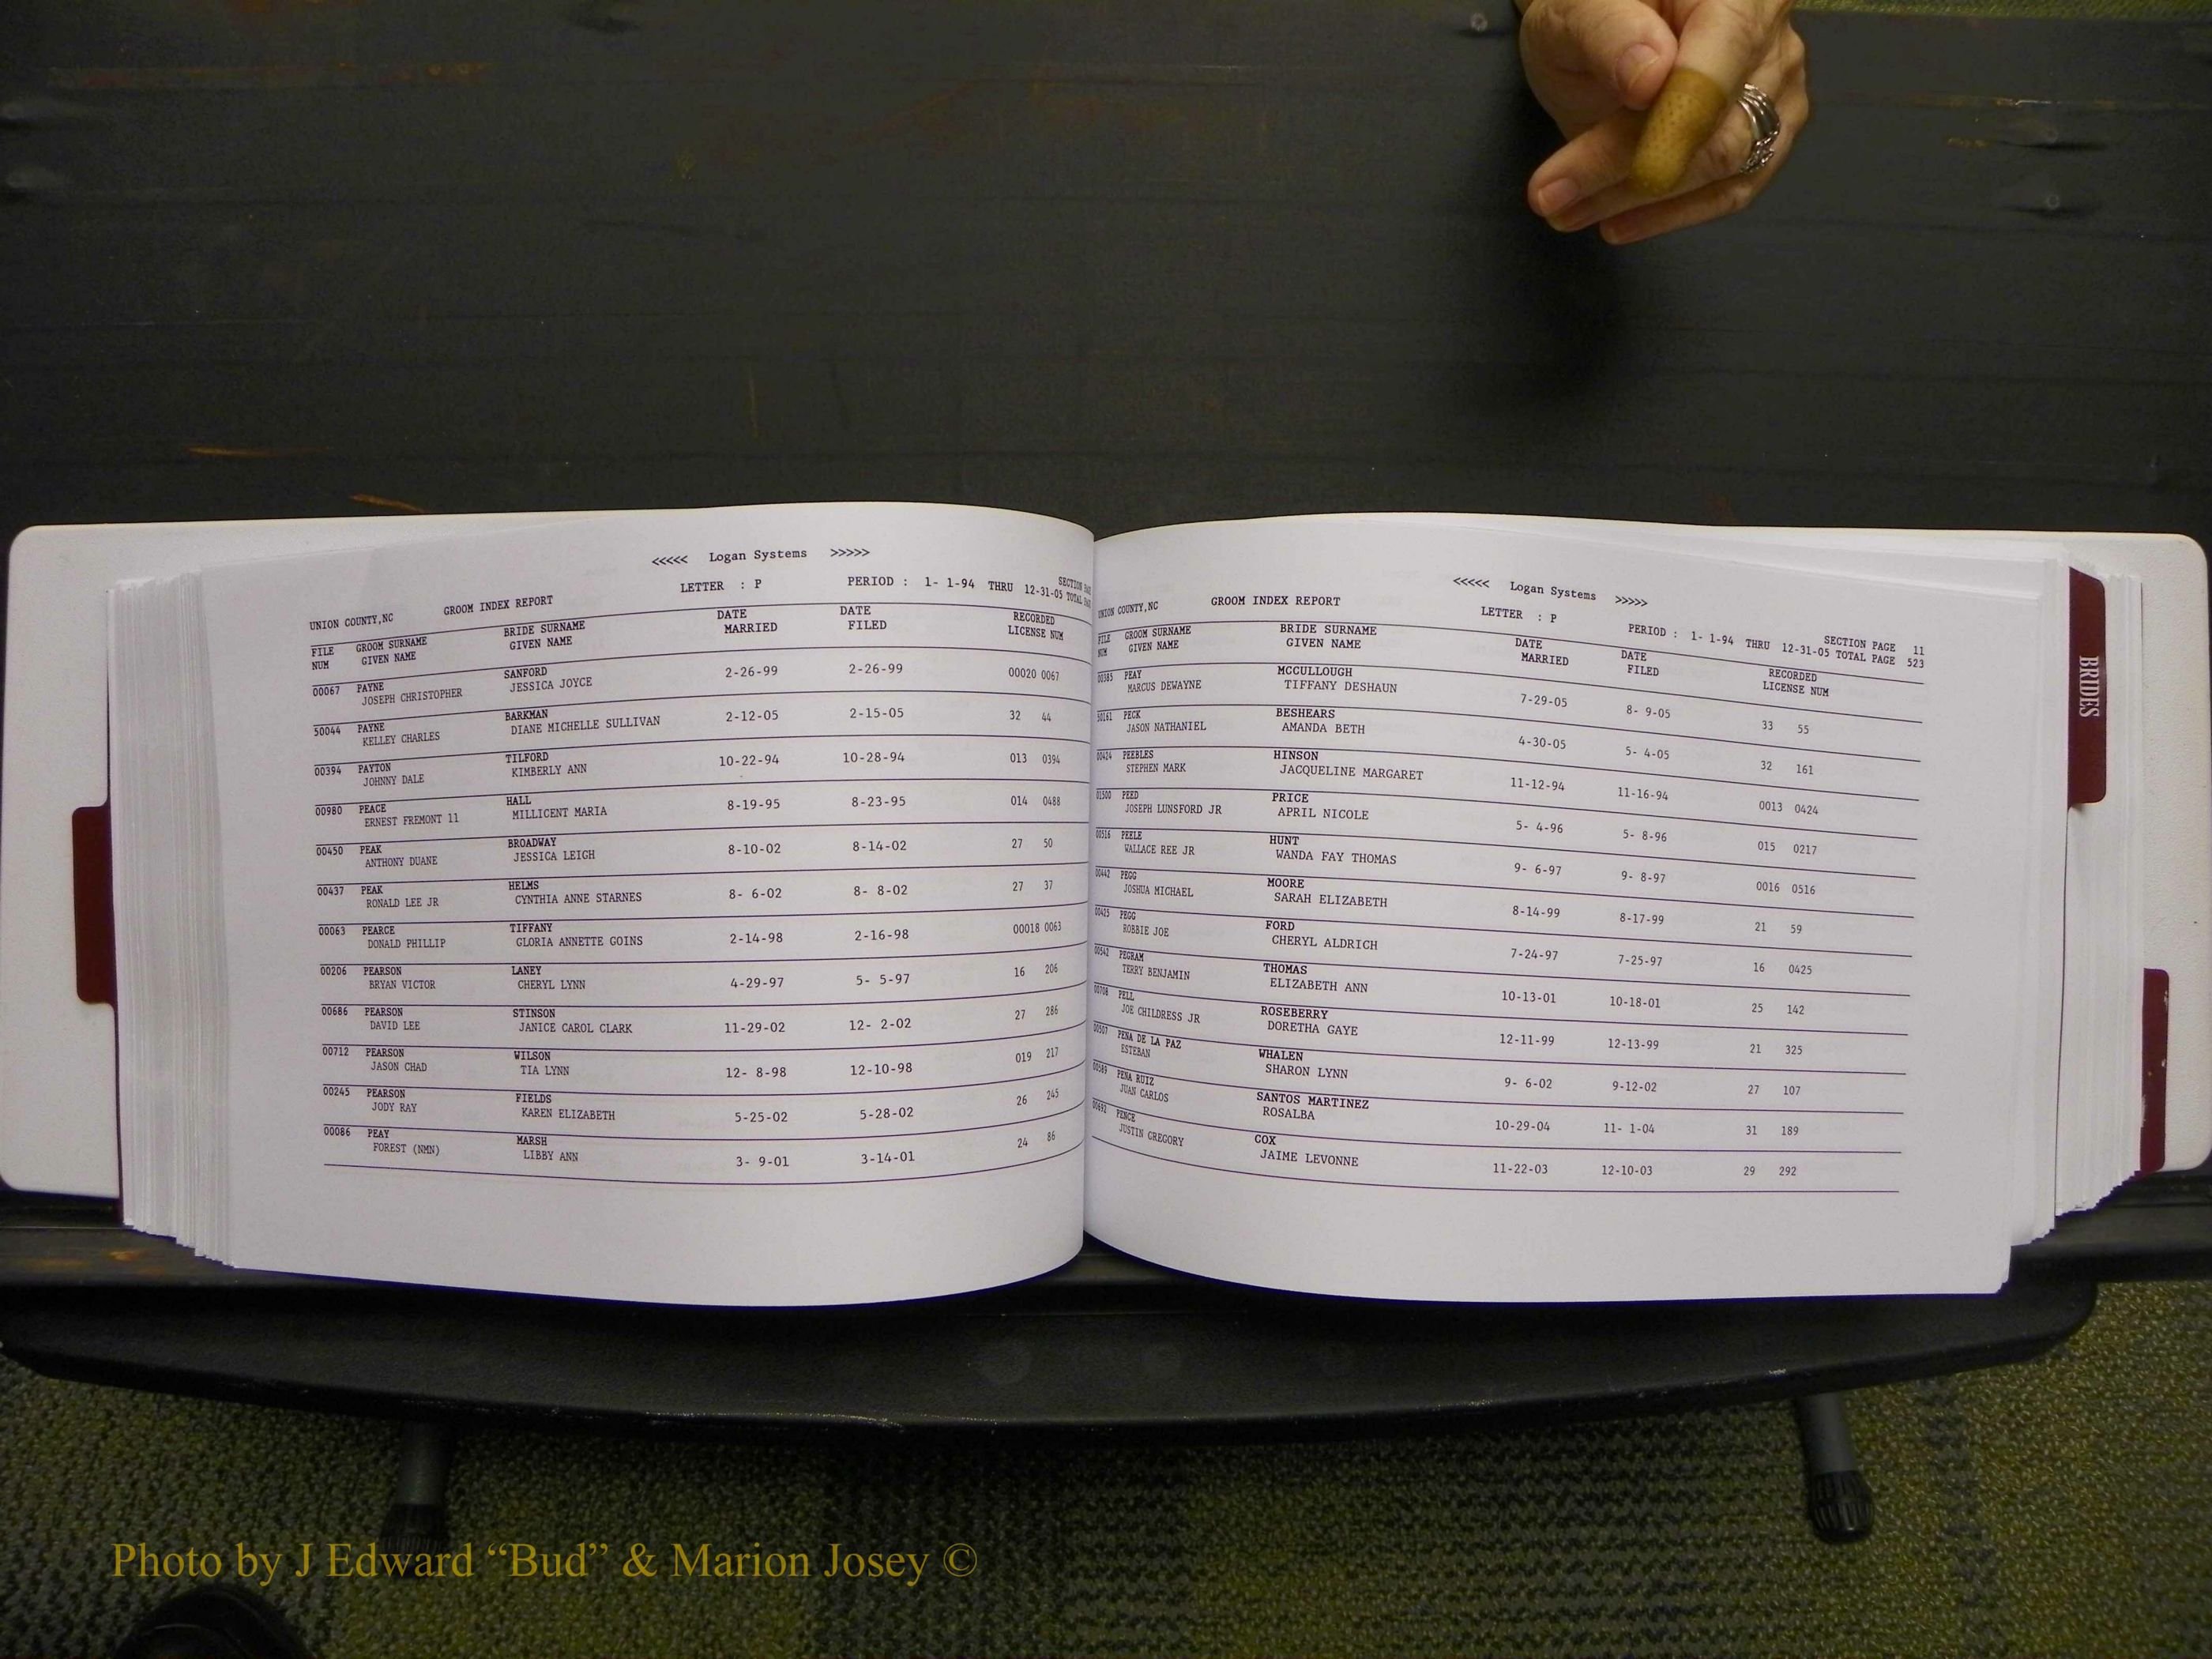 <<<<< Logan Systems >>>>>
UNION COUNTY,NC GROOM INDEX REPORT LETTER : P PERIOD : 1- 1-94 THRU 12-31-05 TOTAL
SECTION
FILE GROOM SURNAME BRIDE SURNAME DATE DATE RECORDED
NUM GIVEN NAME GIVEN NAME MARRIED FILED LICENSE NUM
00067 PAYNE SANFORD 2-26-99 2-26-99 00020 0067
JOSEPH CHRISTOPHER JESSICA JOYCE
50044 PAYNE BARKMAN 2-12-05 2-15-05 32 44
KELLEY CHARLES DIANE MICHELLE SULLIVAN
00394 PAYTON TILFORD 10-22-94 10-28-94 013 0394
JOHNNY DALE KIMBERLY ANN
00980 PEACE HALL 8-19-95 8-23-95 014 0488
ERNEST FREMONT 11 MILLICENT MARIA
00450 PEAK BROADWAY 8-10-02 8-14-02 27 50
ANTHONY DUANE JESSICA LEIGH
00437 PEAK HELMS 8- 6-02 8- 8-02 27 37
RONALD LEE JR CYNTHIA ANNE STARNES
00063 PEARCE TIFFANY 2-14-98 2-16-98 00018 0063
DONALD PHILLIP GLORIA ANNETTE GOINS
00206 PEARSON LANEY 4-29-97 5- 5-97 16 206
BRYAN VICTOR CHERYL LYNN
00686 PEARSON STINSON 11-29-02 12- 2-02 27 286
DAVID LEE JANICE CAROL CLARK
00712 PEARSON WILSON 12- 8-98 12-10-98 019 217
JASON CHAD TIA LYNN
00245 PEARSON FIELDS 5-25-02 5-28-02 26 245
JODY RAY KAREN ELIZABETH
00086 PEAY MARSH 3- 9-01 3-14-01 24 86
FOREST (NMN) LIBBY ANN
<<<<< Logan Systems >>>>>
UNION COUNTY,NC GROOM INDEX REPORT LETTER : P PERIOD : 1- 1-94 THRU 12-31-05 TOTAL PAGE 523
SECTION PAGE 11
FILE GROOM SURNAME BRIDE SURNAME DATE DATE RECORDED
NUM GIVEN NAME GIVEN NAME MARRIED FILED LICENSE NUM
00385 PEAY MCCULLOUGH 7-29-05 8- 9-05 33 55
MARCUS DEWAYNE TIFFANY DESHAUN
50161 PECK BESHEARS 4-30-05 5- 4-05 32 161
JASON NATHANIEL AMANDA BETH
00424 PEEBLES HINSON 11-12-94 11-16-94 0013 0424
STEPHEN MARK JACQUELINE MARGARET
01500 PEED PRICE 5- 4-96 5- 8-96 015 0217
JOSEPH LUNSFORD JR APRIL NICOLE
00516 PEELE HUNT 9- 6-97 9- 8-97 0016 0516
WALLACE REE JR WANDA FAY THOMAS
00442 PEGG MOORE 8-14-99 8-17-99 21 59
JOSHUA MICHAEL SARAH ELIZABETH
00425 PEGG FORD 7-24-97 7-25-97 16 0425
ROBBIE JOE CHERYL ALDRICH
00542 PEGRAM THOMAS 10-13-01 10-18-01 25 142
TERRY BENJAMIN ELIZABETH ANN
00708 PELL ROSEBERRY 12-11-99 12-13-99 21 325
JOE CHILDRESS JR DORETHA GAYE
00507 PENA DE LA PAZ WHALEN 9- 6-02 9-12-02 27 107
ESTEBAN SHARON LYNN
00589 PENA RUIZ SANTOS MARTINEZ 10-29-04 11- 1-04 31 189
JUAN CARLOS ROSALBA
00692 PENCE COX 11-22-03 12-10-03 29 292
JUSTIN GREGORY JAIME LEVONNE
BRIDES
Photo by J Edward “Bud” & Marion Josey ©